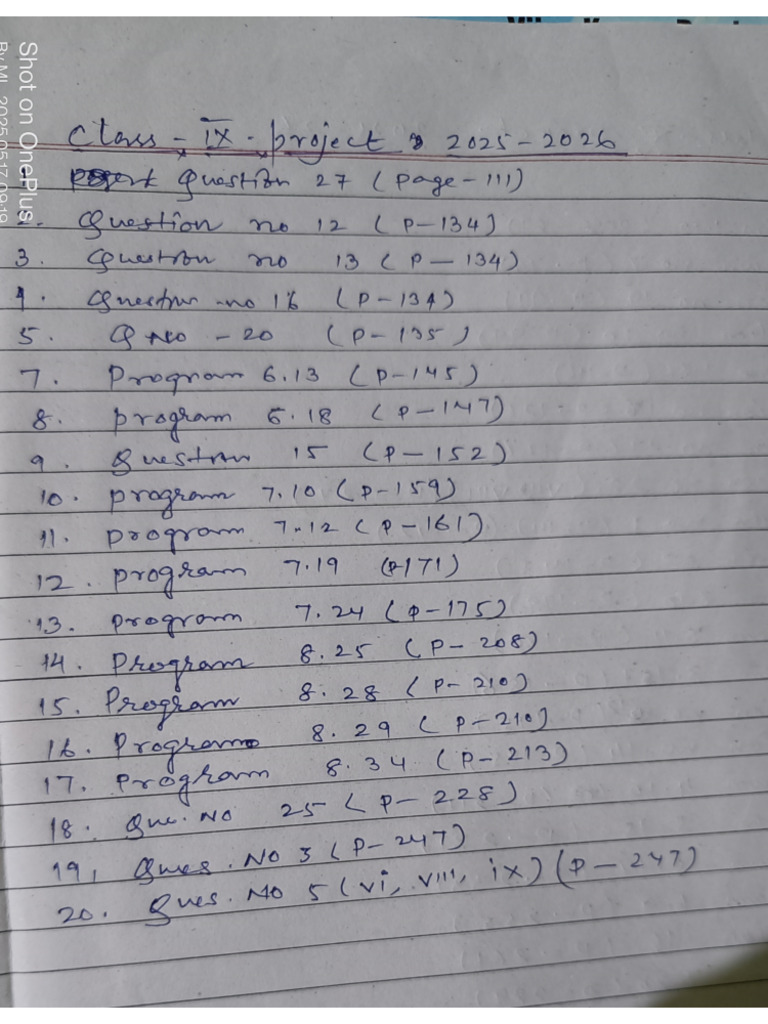 Class - IX - project 2025-2026
1. Question 27 (Page-111)
2. Question no 12 (P-134)
3. Question no 13 (P-134)
4. Question no 16 (P-134)
5. Q NO - 20 (P-135)
7. Program 6.13 (P-145)
8. program 6.18 (P-147)
9. Question 15 (P-152)
10. program 7.10 (P-159)
11. program 7.12 (P-161)
12. program 7.19 (P-171)
13. program 7.24 (P-175)
14. Program 8.25 (P-208)
15. Program 8.28 (P-210)
16. Program 8.29 (P-210)
17. program 8.34 (P-213)
18. Que. No 25 (P-228)
19, Ques. No 3 (P-247)
20. Ques. No 5 (vi, viii, ix) (P-247)
Shot on OnePlus